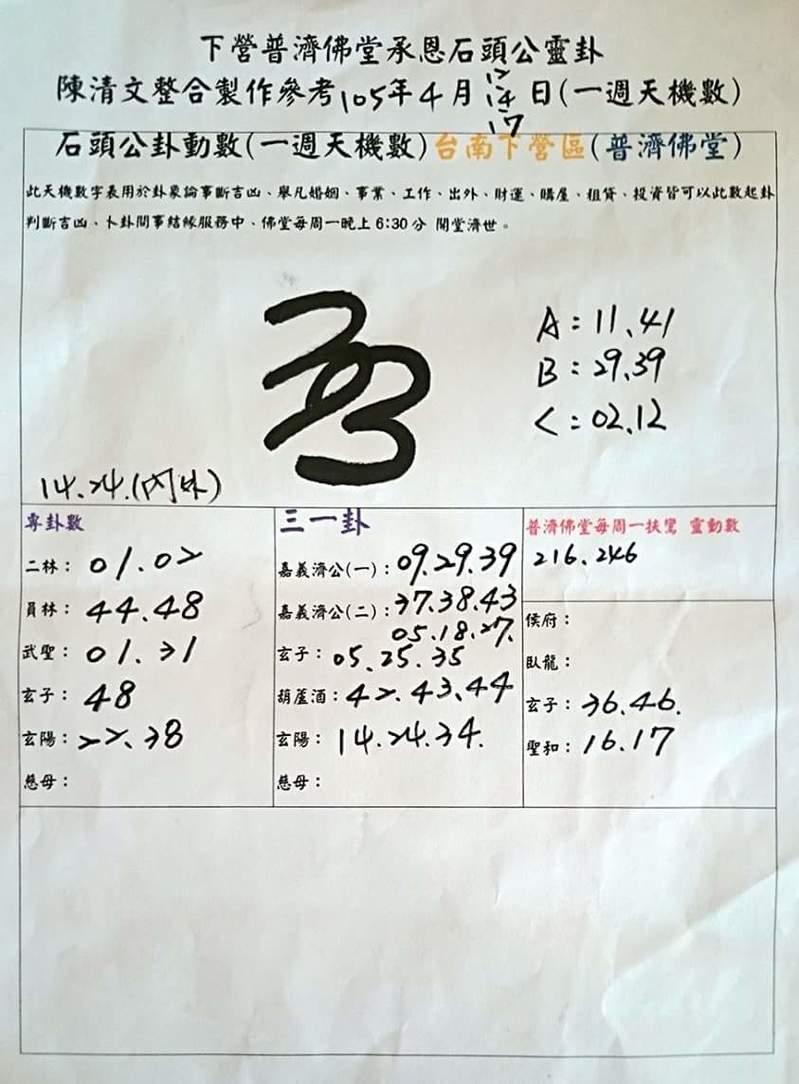 下營普濟佛堂承恩石頭公靈卦
12
陳清文整合製作參考105年4月14日(一週天機數)
17
石頭公卦動數(一週天機數)台南下營區(普濟佛堂)
此天機數字表用於卦象論事斷吉凶、舉凡婚姻、事業、工作、出外、財運、購屋、租貸、投資皆可以此數起卦
判斷吉凶、卜卦問事結緣服務中、佛堂每周一晚上6:30分 開堂濟世。
A:11、41
B:29、39
C:02、12
14、24、(內外)
專卦數
二林:01、02
員林:44、48
武聖:01、31
玄子:48
玄陽:22、38
慈母:
三一卦
嘉義濟公(一):09、29、39
嘉義濟公(二):37、38、43
05、18、27、
玄子:05、25、35
葫蘆酒:42、43、44
玄陽:14、24、34、
慈母:
普濟佛堂每周一扶鸞 靈動數
216、246
侯府:
臥龍:
玄子:36、46、
聖和:16、17